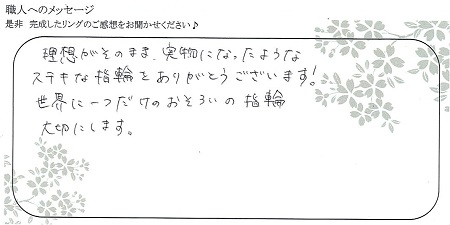 職人へのメッセージ
是非 完成したリングのご感想をお聞かせください♪
理想がそのまま、実物になったような
ステキな指輪をありがとうございます！
世界に一つだけのおそろいの指輪
大切にします。